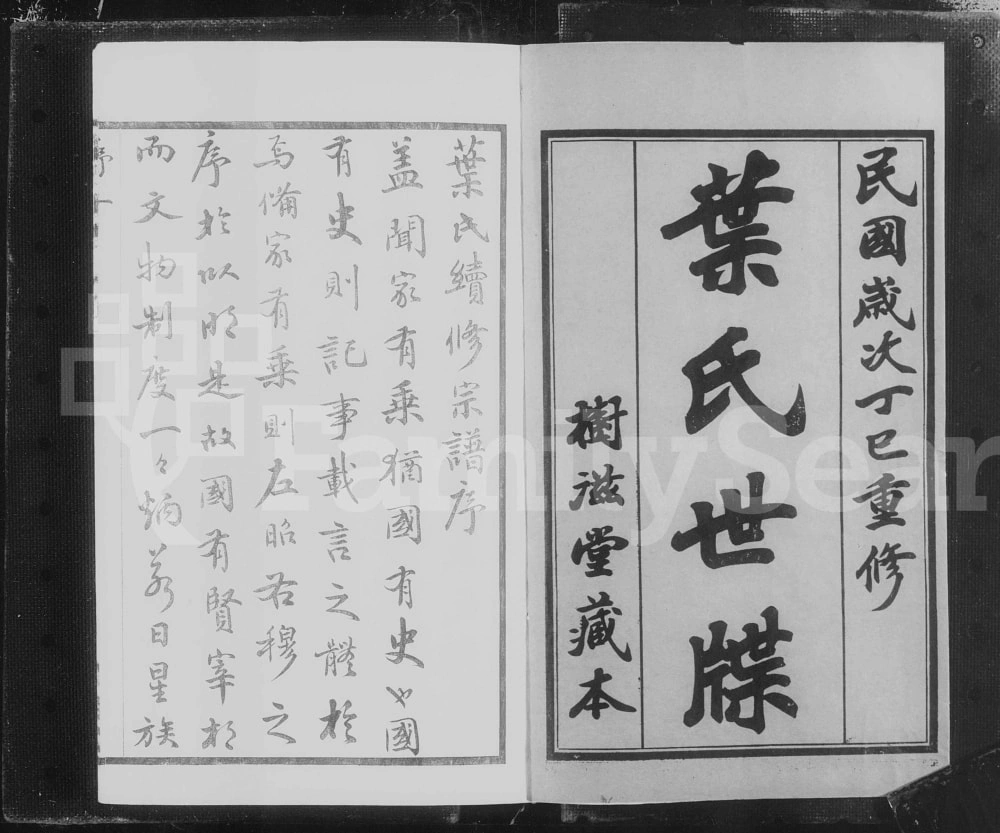 民國歲次丁巳重修
葉氏世牒
樹滋堂藏本
葉氏續修宗譜序
蓋聞家有乘猶國有史也國
有史則記事載言之體於
焉備家有乘則左昭右穆之
序於以明是故國有賢宰相
而文物制度一々炳若日星族
FamilySear